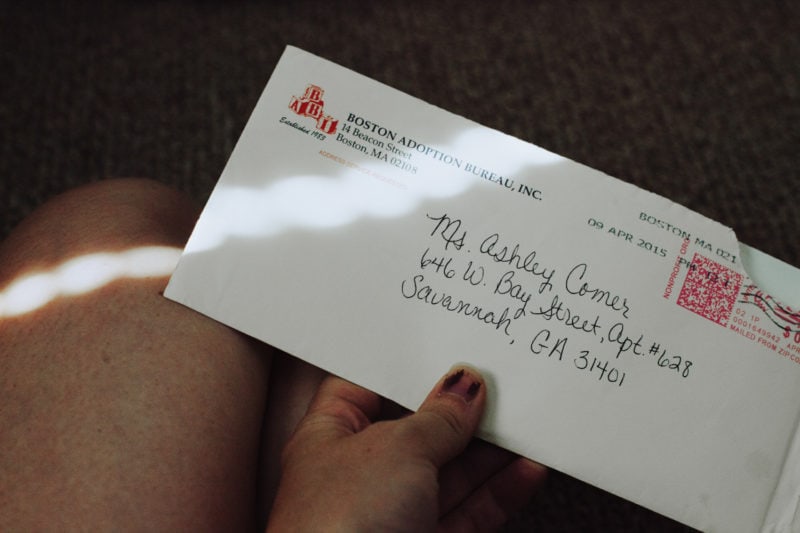 Established 1983
BOSTON ADOPTION BUREAU, INC.
14 Beacon Street
Boston, MA 02108
ADDRESS SERVICE REQUESTED
BOSTON MA 021
09 APR 2015 PM
NONPROFIT
02 1P
MAILED FROM ZIPCO
Ms. Ashley Comer
646 W. Bay Street, Apt. #628
Savannah, GA 31401